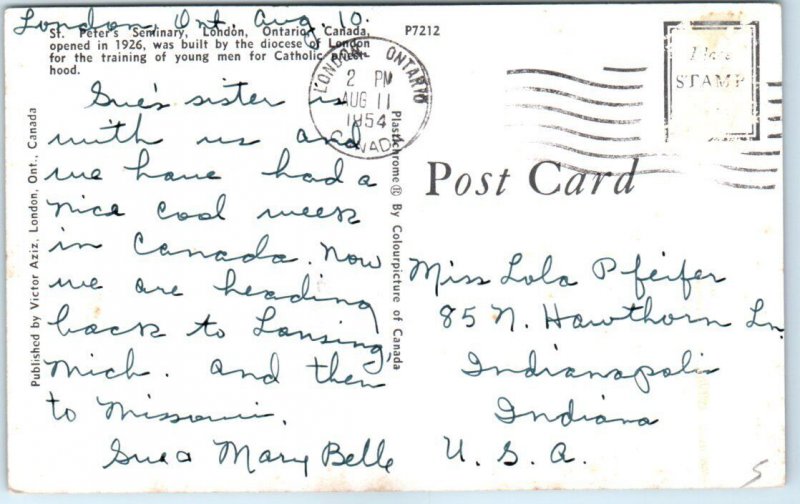 London, Ont. Aug. 10.
St. Peter's Seminary, London, Ontario, Canada,
opened in 1926, was built by the diocese of London
for the training of young men for Catholic priest-
hood.
P7212
Sue's sister is
with us and
we have had a
nice cool week
in Canada. Now
we are heading
back to Lansing,
Mich. and then
to Missouri.
Sue & Mary Belle
Published by Victor Aziz, London, Ont., Canada
Plastichrome ® By Colourpicture of Canada
LONDON ONTARIO
2 PM
AUG 11
1954
CANADA
Place
STAMP
Here
Post Card
Miss Lola Pfeifer
85 N. Hawthorn Ln.
Indianapolis
Indiana
U. S. A.
5